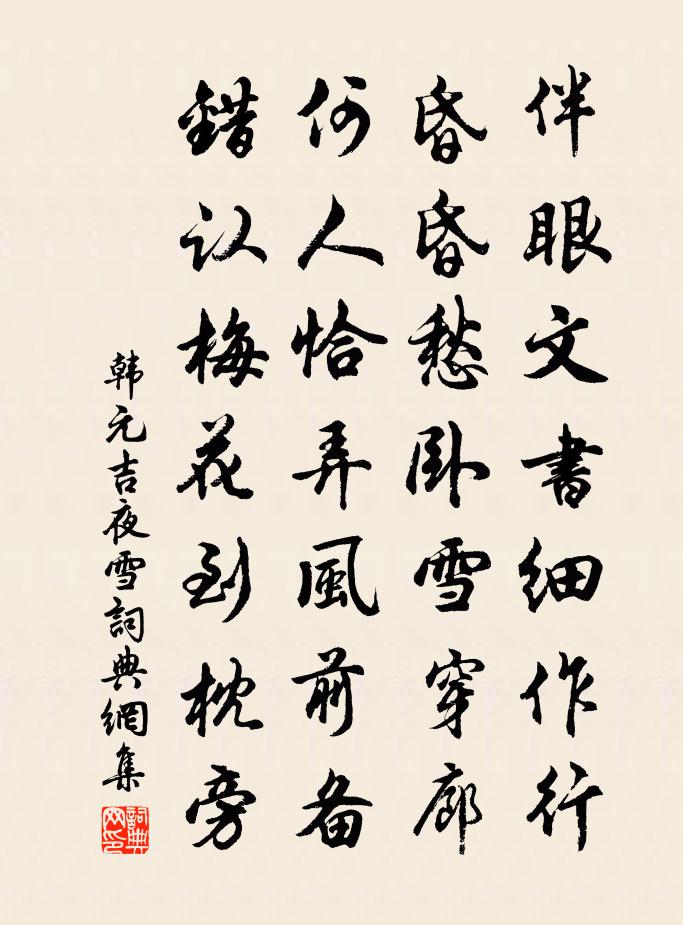 伴眼文書細作行
昏昏愁卧雪穿廊
何人恰弄風前笛
错认梅花到枕旁
韩元吉夜雪詞典網集
詞典网印